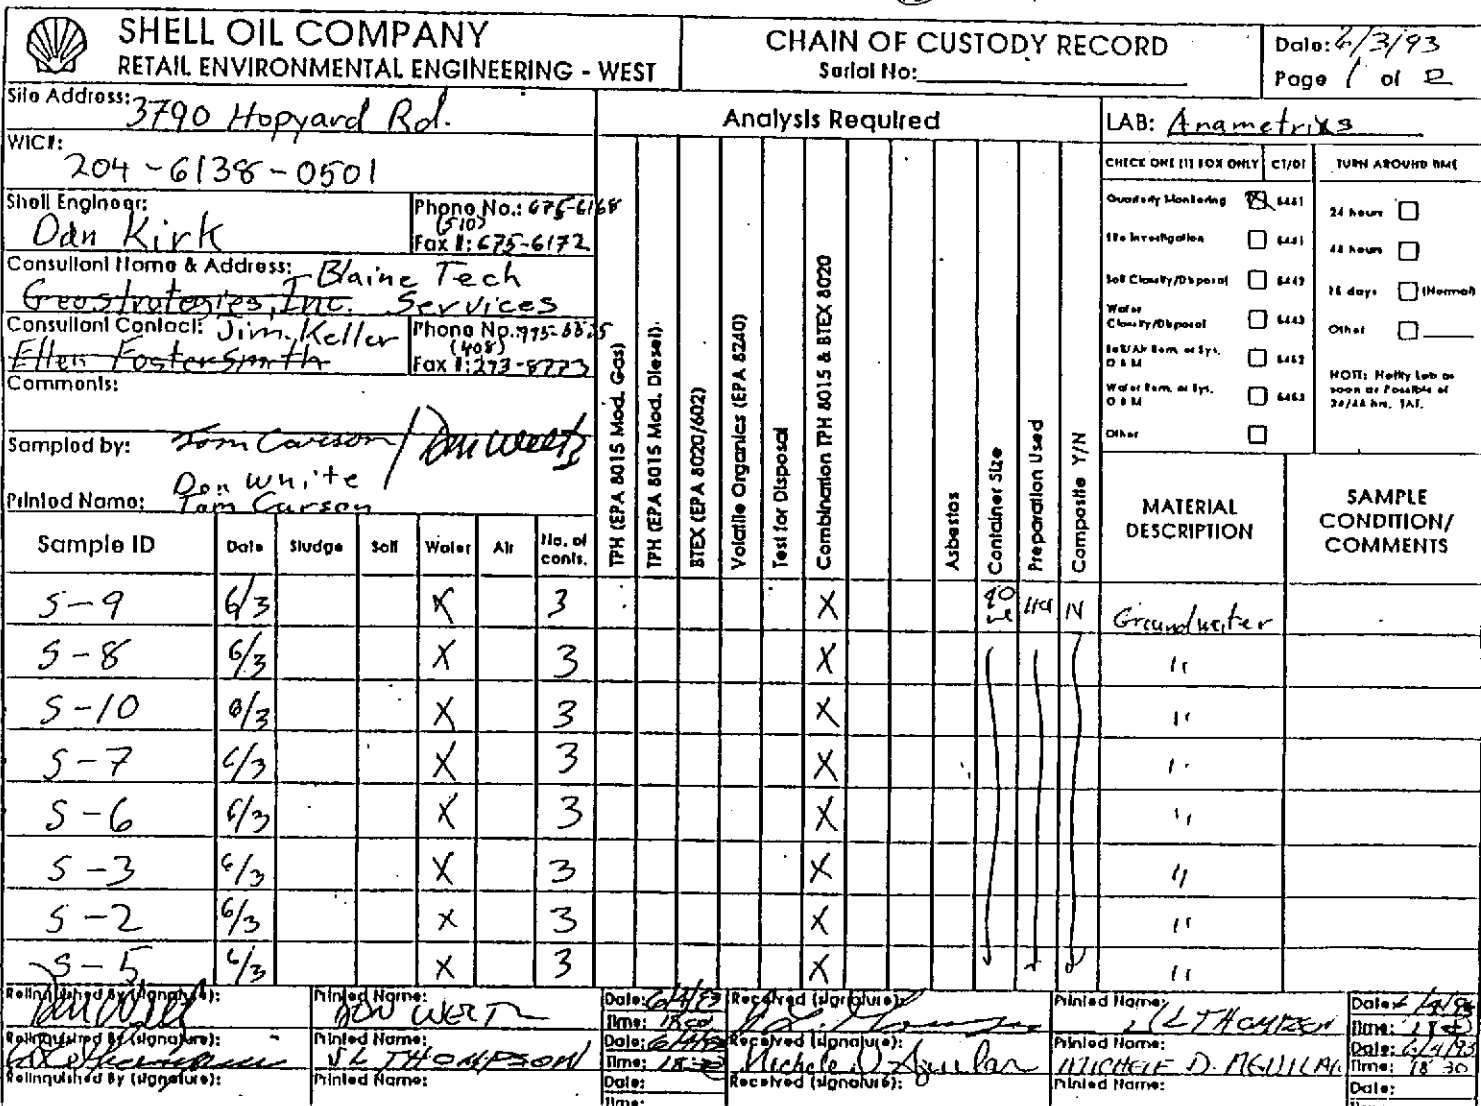 SHELL OIL COMPANY
RETAIL ENVIRONMENTAL ENGINEERING - WEST
CHAIN OF CUSTODY RECORD
Serial No:
Date: 6/3/93
Page 1 of 2
Site Address: 3790 Hopyard Rd.
WIC#: 204-6138-0501
Shell Engineer: Dan Kirk
Phone No.: 675-6168
(510)
Fax #: 675-6172
Consultant Name & Address: Blaine Tech
Geostrategies, Inc. Services
Consultant Contact: Jim Keller
Ellen Fostersmith
Phone No. 995-5535
(408)
Fax #: 293-8773
Comments:
Sampled by: Tom Carson /
Don White
Printed Name: Tom Carson
Analysis Required
LAB: Anametrix
CHECK ONE (1) BOX ONLY CT/DT
TURN AROUND TIME
Quarterly Monitoring 6441
Site Investigation 6441
Soil Classify/Disposal 6442
Water Classify/Disposal 6443
Soil/Air Rem. or Sys. O & M 6452
Water Rem. or Sys. O & M 6453
Other
24 hours
48 hours
16 days (Normal)
Other
NOTE: Notify Lab as soon as Possible of 24/48 hrs. TAT.
TPH (EPA 8015 Mod. Gas)
TPH (EPA 8015 Mod. Diesel)
BTEX (EPA 8020/602)
Volatile Organics (EPA 8240)
Test for Disposal
Combination TPH 8015 & BTEX 8020
Asbestos
Container Size
Preparation Used
Composite Y/N
MATERIAL DESCRIPTION
SAMPLE CONDITION/ COMMENTS
Sample ID Date Sludge Soil Water Air No. of conts.
S-9 6/3 X 3 X 40 HCl N Groundwater
S-8 6/3 X 3 X "
S-10 6/3 X 3 X "
S-7 6/3 X 3 X "
S-6 6/3 X 3 X "
S-3 6/3 X 3 X "
S-2 6/3 X 3 X "
S-5 6/3 X 3 X "
Relinquished By (signature): Printed Name: Date: 6/4/93 Received (signature): Printed Name: JL THOMPSON Date:
Time: Time:
Relinquished By (signature): Printed Name: JL THOMPSON Date: 6/4/93 Received (signature): Michele D. Aguilar Printed Name: MICHELE D. AGUILAR Date: 6/4/93
Time: 18:30 Time: 18 30
Relinquished By (signature): Printed Name: Date: Received (signature): Printed Name: Date:
Time: